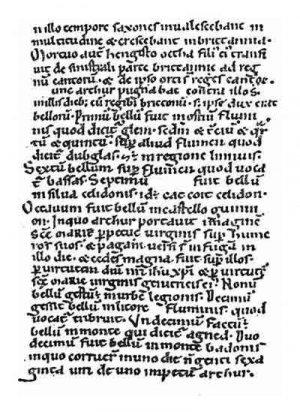 n illo tempore saxones inualescebant in
multitudine & crescebant in brittannia.
Mortuo aut hengisto octha fili' ei' transi
uit de sinistrali parte brittanniae ad reg
nu cantoru. & de ipso orti s reges cantor.
unc arthur pugnabat contra illos.
in illis dieb; cu regib; brittonu. s; ipse dux erat
belloru. Primu bellu fuit in ostiu flumi
nis quod dicit glein. secdm & tciu & qr
tu & quintu. sup aliud flumen quod
dicit dubglas. & in regione linnuis.
Sextu bellum sup flumen quod uocat
bassas. Septimu fuit bellu
in silua celidonis. id e cat coit celidon.
Octauum fuit bellu in castello guinni
on. In quo arthur portauit imagine
sce marie ppetue uirginis sup hume
ros suos. & pagani uersi s in fuga in
illo die. & cedes magna fuit sup illos.
p uirtutem dni nri ihu xpi & p uirtute
sce marie uirginis genitricis ei'. Nonu
bellu gestu e in urbe legionis. Decimu
gessit bellu in litore fluminis. quod
uocat tribruit. Undecimu factu e
bellu in monte qui dicit agned. Duo
decimu fuit bellu in monte badonis
in quo corruer in uno die nngenti sexa
ginta uiri de uno impetu arthur.